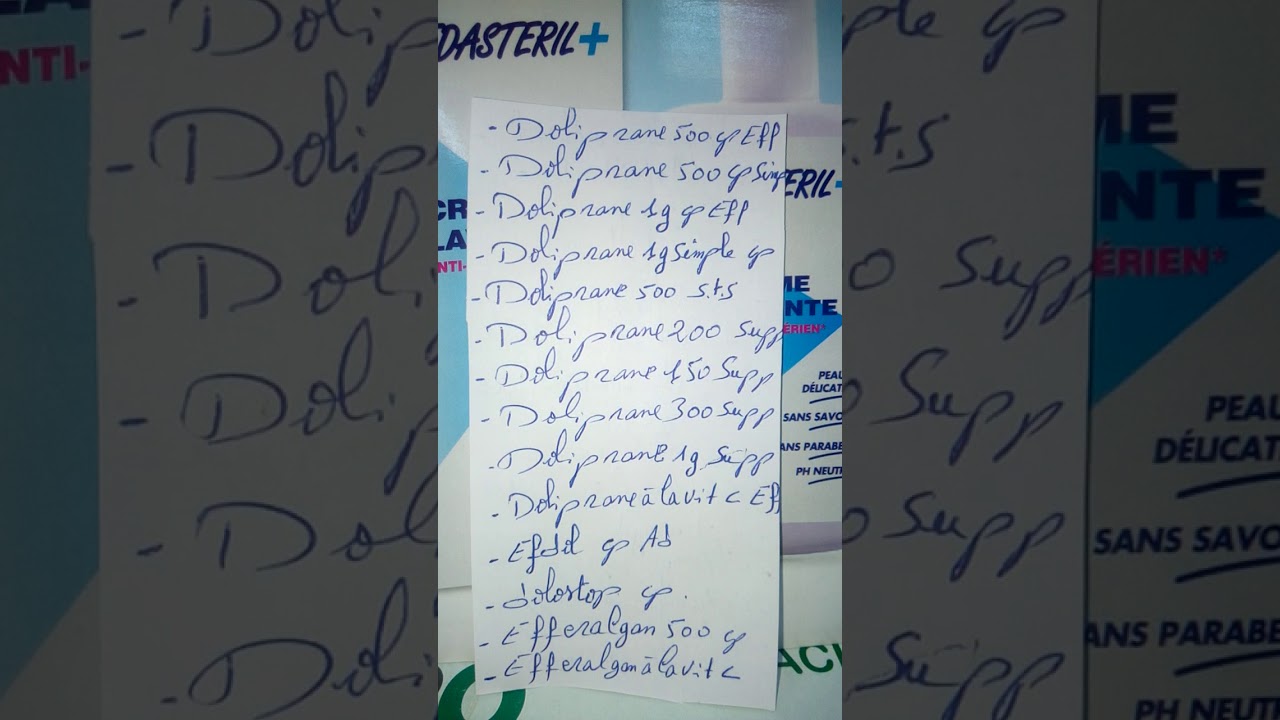 DASTERIL+
- Doliprane 500 cp Eff
- Doliprane 500 cp Simp
- Doliprane 1g cp Eff
- Doliprane 1g Simple cp
- Doliprane 500 s.t.s
- Doliprane 200 Supp
- Doliprane 150 Supp
- Doliprane 300 Supp
- Doliprane 1g Supp
- Doliprane à la vit C Eff
- Efdol cp Ad
- dolostop cp.
- Efferalgan 500 cp
- Efferalgan à la vit C
ERIL+
CR
LA
NTI-
ME
NTE
ÉRIEN*
PEAU
DÉLICAT
SANS SAVO
ANS PARABE
PH NEUT
ACI